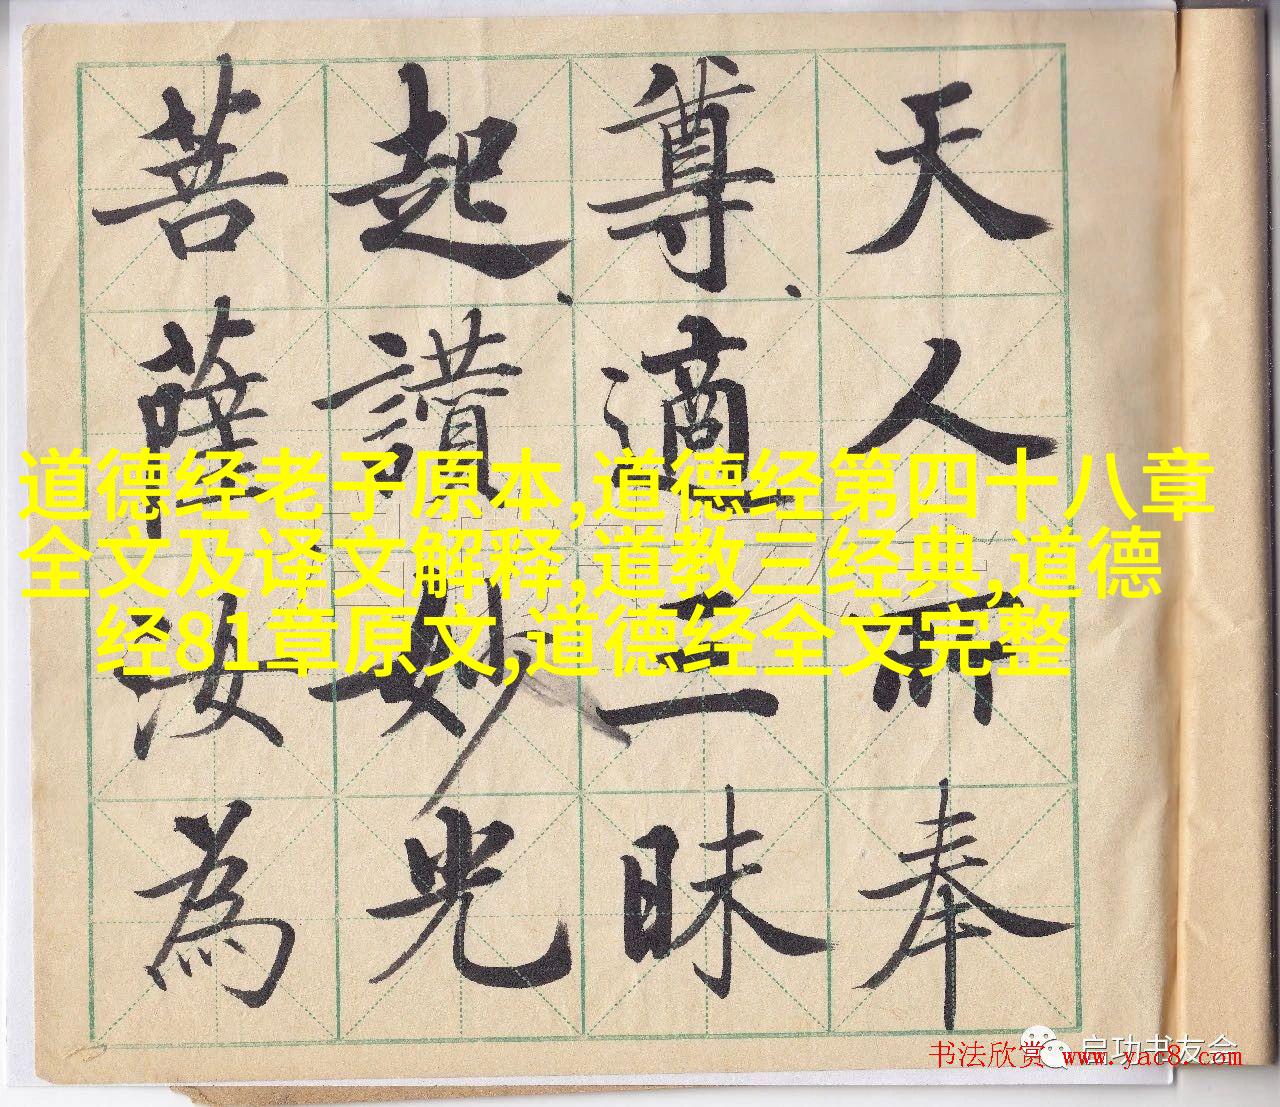 天人所奉
尊、適三昧
起、讚妙光
菩薩汝為
道德经老子原本,道德经第四十八章
全文及译文解释,道教三经典,道德
经81章原文,道德经全文完整
启功书友会
书法欣赏 www.yac8.com